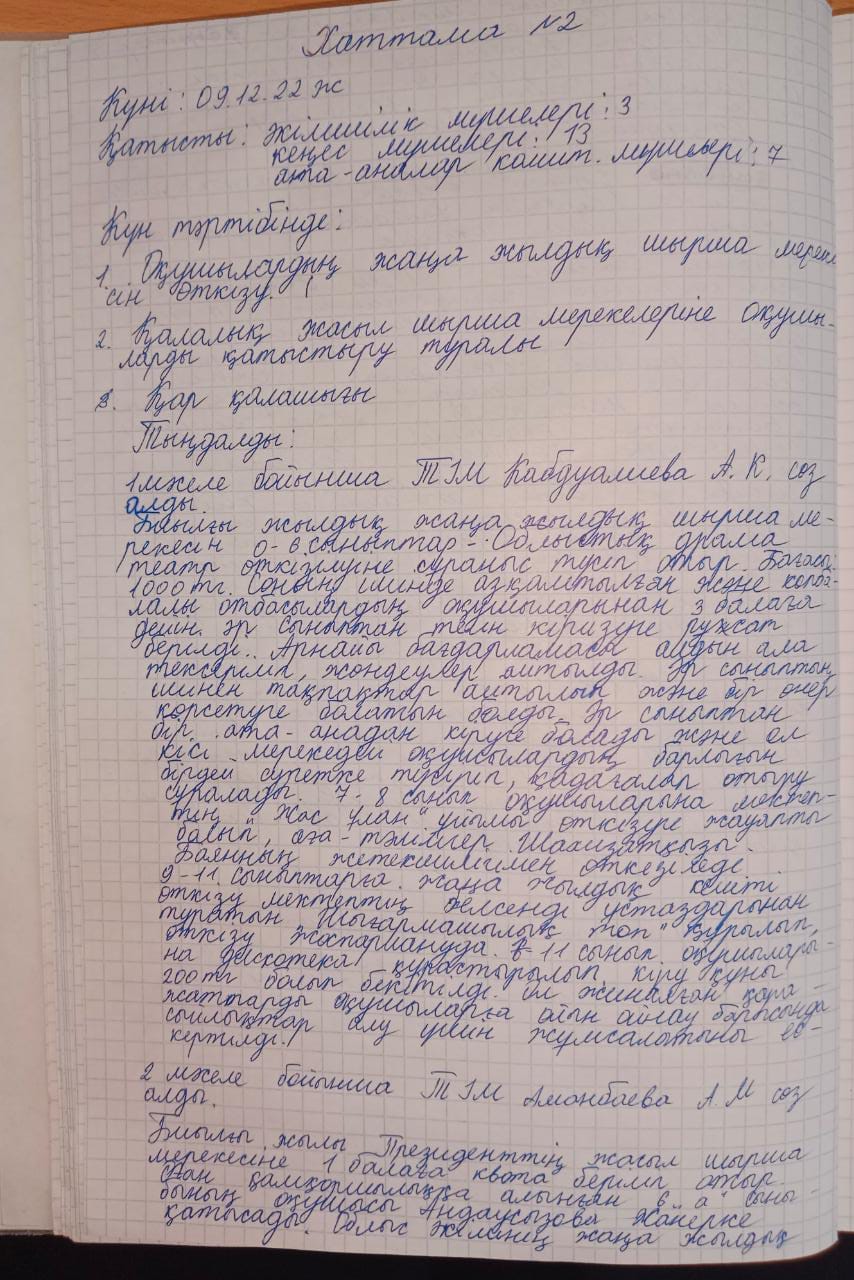 Хаттама №2
Күні: 09.12.22 ж
Қатысты: әкімшілік мүшелері: 3
кеңес мүшелері: 13
ата-аналар комит. мүшелері: 7
Күн тәртібінде:
1. Оқушылардың жаңа жылдық шырша мереке
сін өткізу.
2. Қалалық жасыл шырша мерекелеріне оқушы-
ларды қатыстыру туралы
3. Қар қалашығы
Тыңдалды:
1 мәселе бойынша ТІМ Кабдуалиева А.К. сөз
алды.
Биылғы жылдық жаңа жылдық шырша ме-
рекесін 0-6 сыныптар - Облыстық драма
театр өткізілуіне сұраныс түсіп отыр. Бағасы:
1000 тг. Соның ішінде азқамтылған және көпба-
лалы отбасылардың оқушыларынан 3 балаға
дейін әр сыныптан тегін кіргізуге рұқсат
берілді. Арнайы бағдарламасы алдын ала
тексеріліп, жөндеулер айтылды. Әр сыныптың
ішінен тақпақтар айтылып және бір өнер
көрсетуге болатын болды. Әр сыныптан
бір ата-анадан кіруге болады және ол
кісі мерекедегі оқушылардың барлығын
бірдей суретке түсіріп, қадағалап отыру
сұралады. 7-8 сынып оқушыларына мектеп-
тің "Жас Ұлан" ұйымы өткізуге жауапты
болып, аға-тәлімгер Шахизатқызы
Баянның жетекшілігімен өткізіледі.
9-11 сыныптарға жаңа жылдық кешті
өткізу мектептің белсенді ұстаздарынан
тұратын "Шығармашылық топ" құрылып,
өткізу жоспарлануда. 8-11 сынып оқушылары-
на дискотека құрастырылып, кіру құны
200 тг болып бекітілді. Ол жиналған қара-
жаттарды оқушыларға ойын ойнау барысында
сыйлықтар алу үшін жұмсалатыны ес-
кертілді.
2 мәселе бойынша ТІМ Аманбаева А.М сөз
алды.
Биылғы жылы Президенттің жасыл шырша
мерекесіне 1 балаға квота беріліп отыр.
Оған қамқоршылыққа алынған 6 "а" сыны-
бының оқушысы Андаусызова Жанерке
қатысады. Облыс әкімінің жаңа жылдық